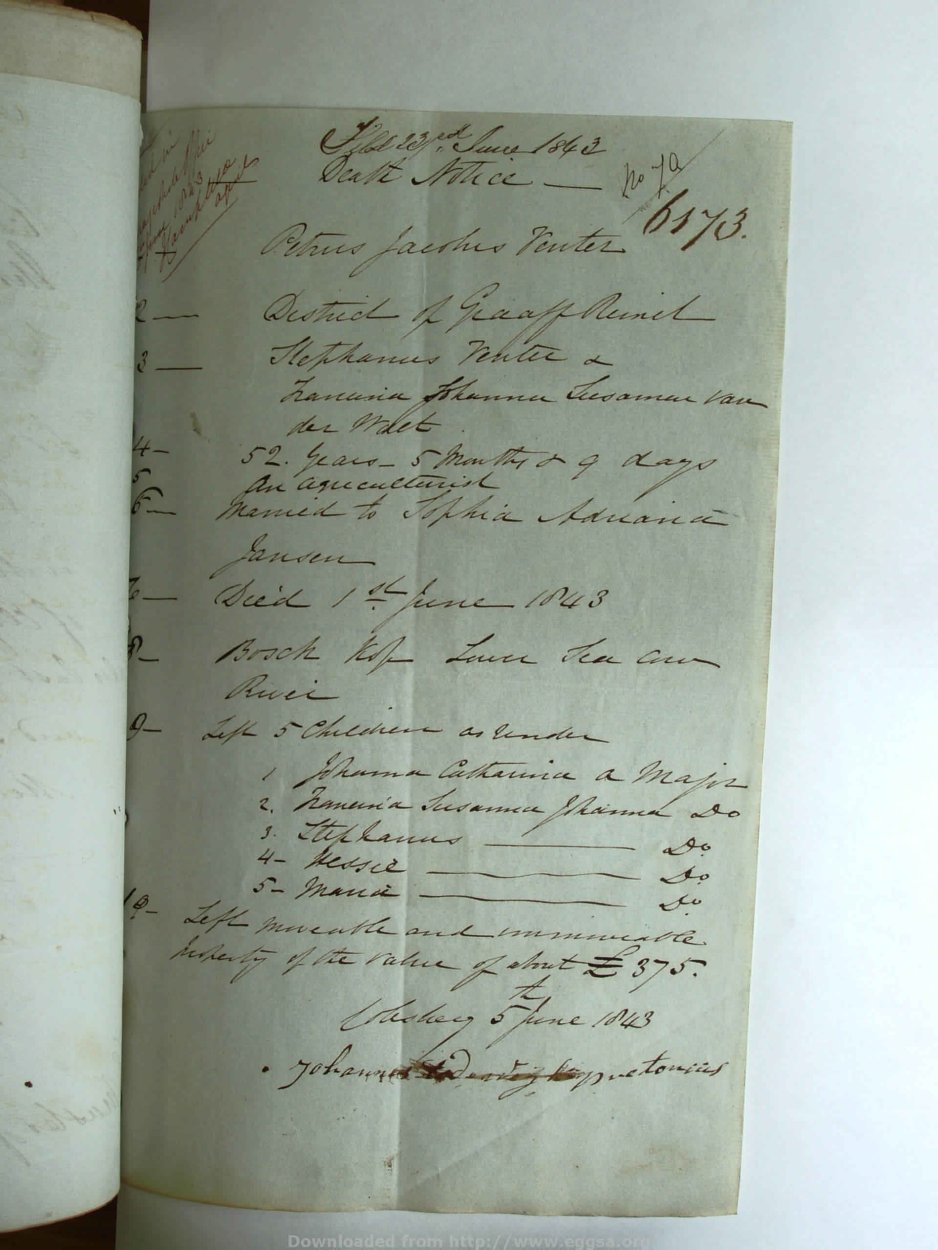 Filed 23rd. June 1843
Death Notice —
No 79
6173.
Petrus Jacobus Venter
2 — District of Graaff Reinet
3 — Stephanus Venter &
Francina Johanna Susanna van
der Walt
4 - 52. Years - 5 Months & 9 days
5 An agriculturist
6 — Married to Sophia Adriana
Jansen
7 — Died 1st June 1843
8 - Bosch Kop Lower Sea Cow
River
9 - Left 5 Children as under
1 Johanna Catharina a Major
2. Francina Susanna Johanna Do
3. Stephanus — Do
4 - Hessie — Do
5 - Maria — Do
10 - Left moveable and immoveable
property of the value of about £375.
Colesberg 5th June 1843
Johannes
pretorius
Downloaded from http://www.eggsa.org